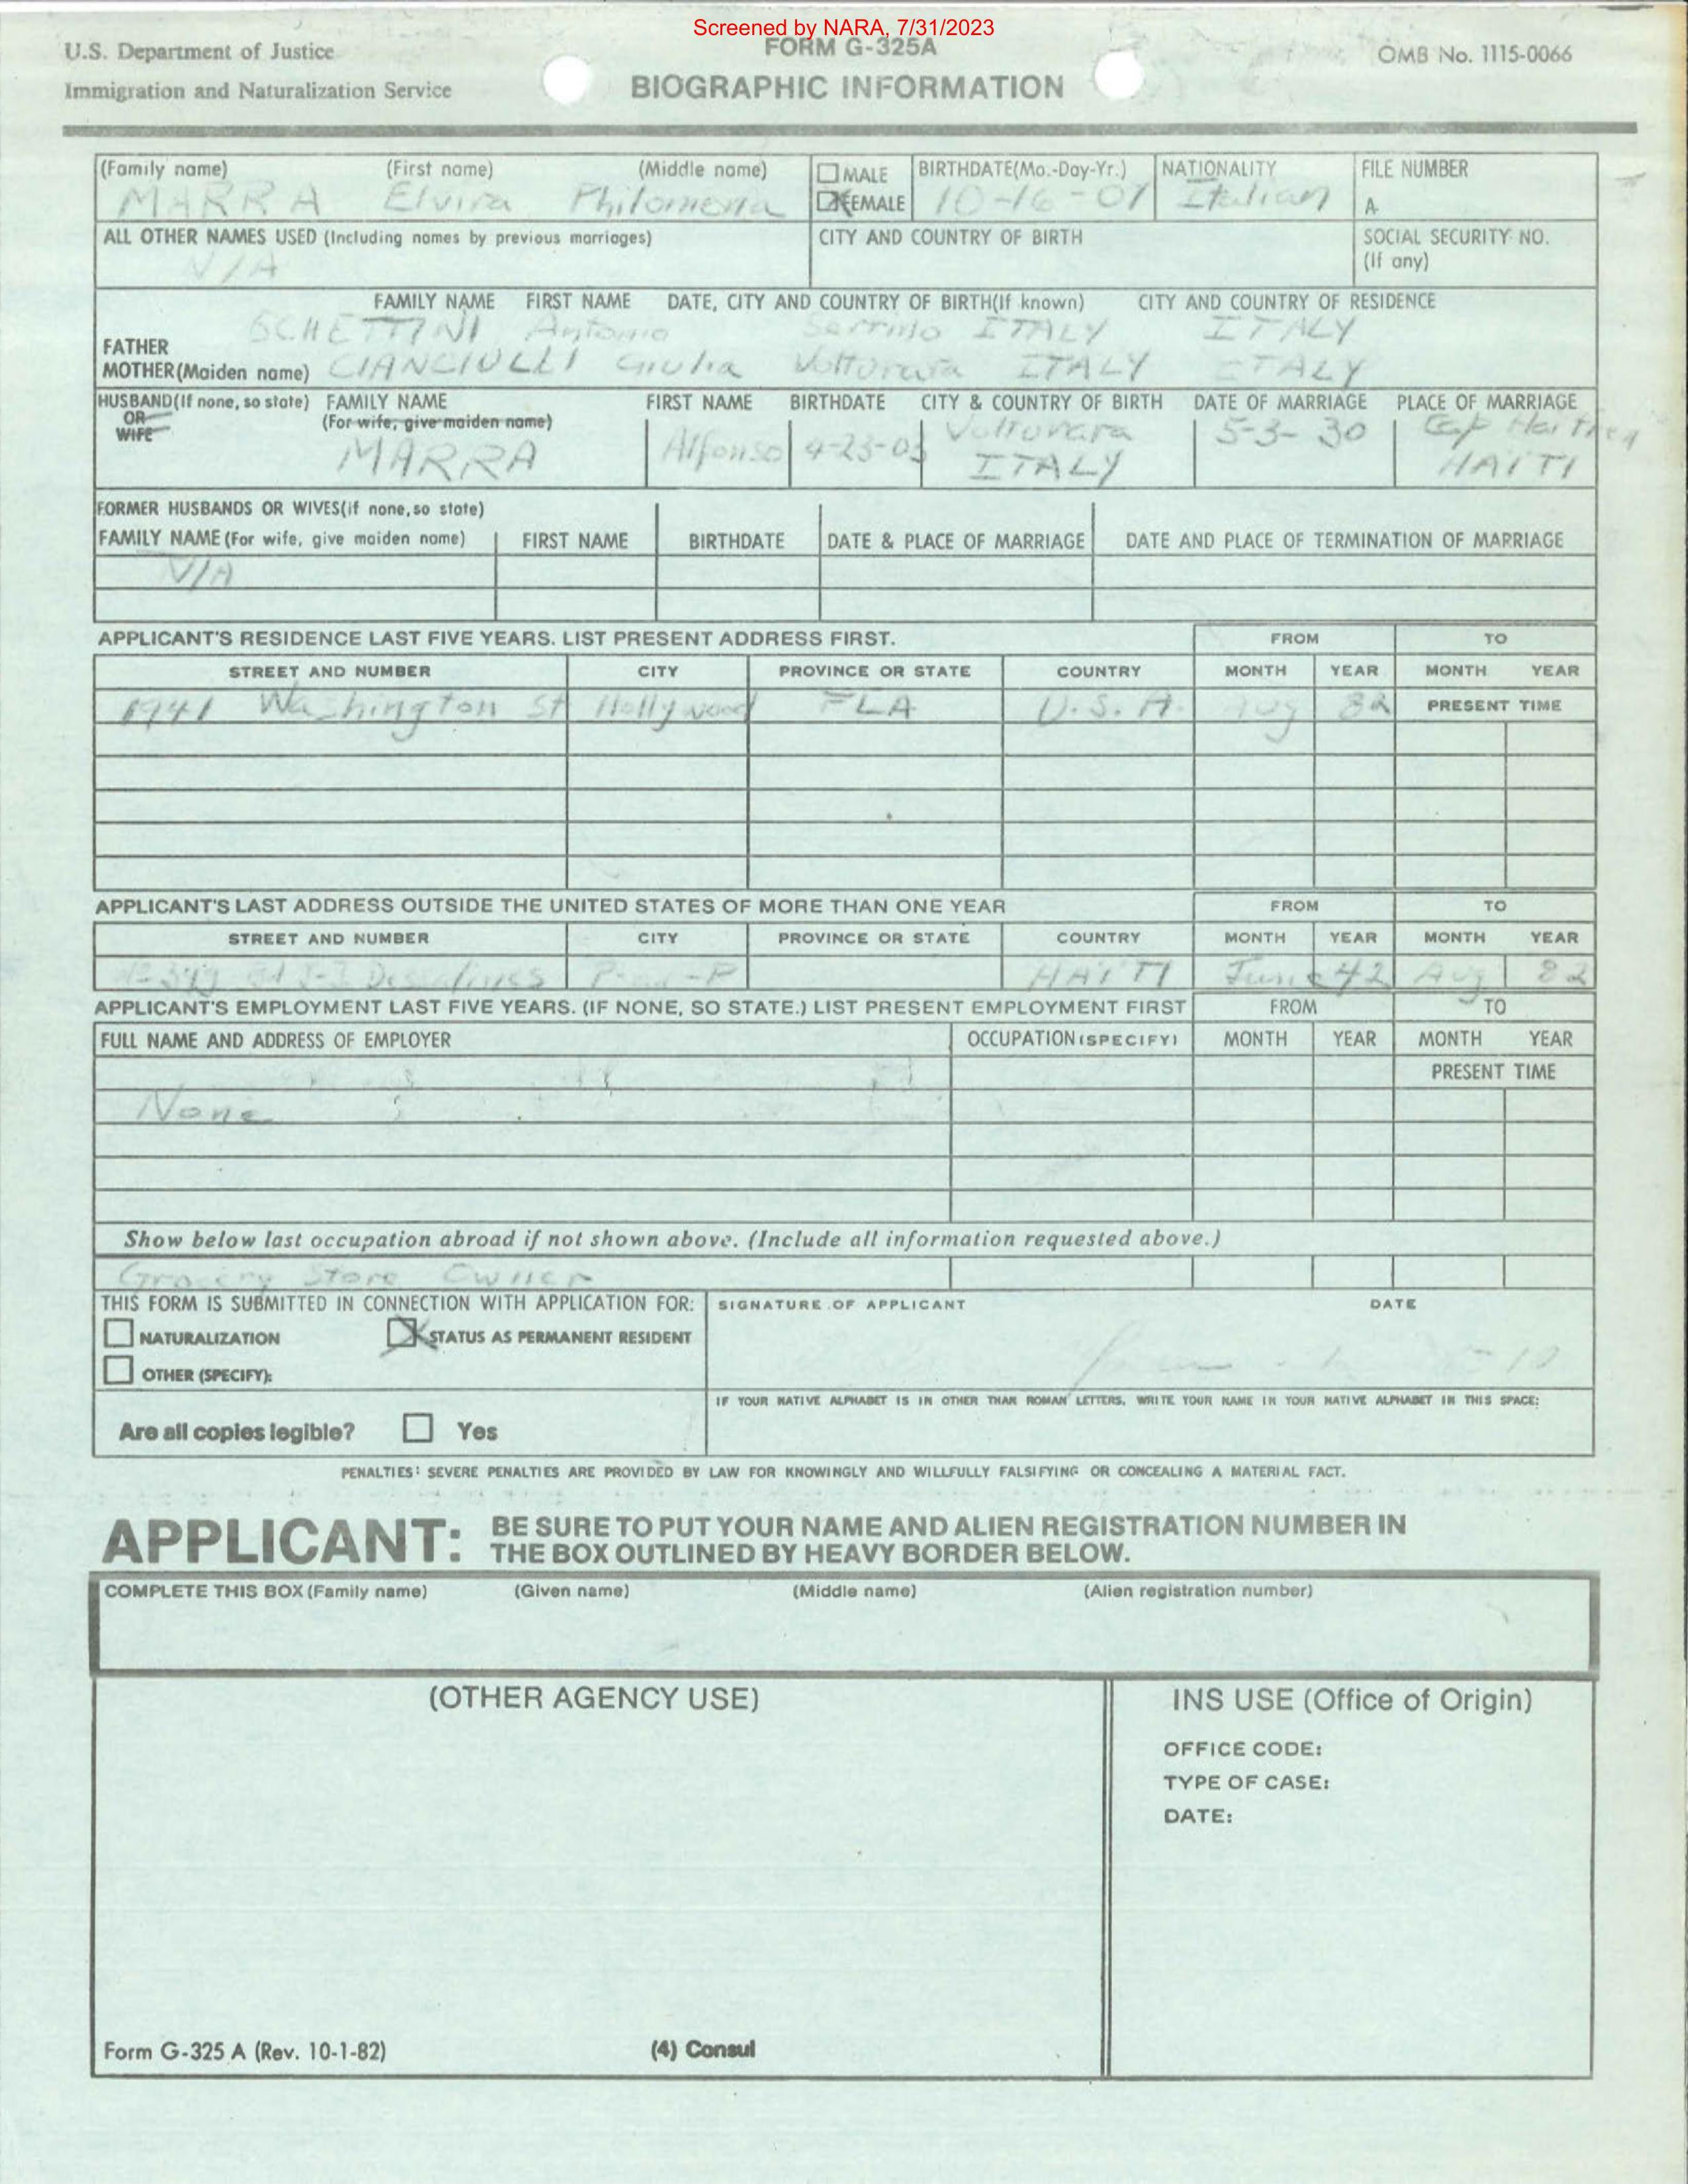 Screened by NARA, 7/31/2023
U.S. Department of Justice
FORM G-325A
OMB No. 1115-0066
Immigration and Naturalization Service
BIOGRAPHIC INFORMATION
(Family name) (First name) (Middle name) MALE BIRTHDATE(Mo.-Day-Yr.) NATIONALITY FILE NUMBER
MARRA Elvira Philomena FEMALE 10-16-07 Italian A-
ALL OTHER NAMES USED (Including names by previous marriages) CITY AND COUNTRY OF BIRTH SOCIAL SECURITY NO.
(If any)
N/A
FAMILY NAME FIRST NAME DATE, CITY AND COUNTRY OF BIRTH(If known) CITY AND COUNTRY OF RESIDENCE
FATHER SCHETTINI Antonio ITALY ITALY
MOTHER(Maiden name) CIANCIULLI Giulia Volturara ITALY ITALY
HUSBAND(If none, so state) FAMILY NAME FIRST NAME BIRTHDATE CITY & COUNTRY OF BIRTH DATE OF MARRIAGE PLACE OF MARRIAGE
OR (For wife, give maiden name)
WIFE
MARRA Alfonso 4-23-03 Volturara 5-3-30 Cap Haitien
ITALY HAITI
FORMER HUSBANDS OR WIVES(if none, so state)
FAMILY NAME (For wife, give maiden name) FIRST NAME BIRTHDATE DATE & PLACE OF MARRIAGE DATE AND PLACE OF TERMINATION OF MARRIAGE
N/A
APPLICANT'S RESIDENCE LAST FIVE YEARS. LIST PRESENT ADDRESS FIRST. FROM TO
STREET AND NUMBER CITY PROVINCE OR STATE COUNTRY MONTH YEAR MONTH YEAR
1941 Washington St Hollywood FLA U.S.A. Aug 82 PRESENT TIME
APPLICANT'S LAST ADDRESS OUTSIDE THE UNITED STATES OF MORE THAN ONE YEAR FROM TO
STREET AND NUMBER CITY PROVINCE OR STATE COUNTRY MONTH YEAR MONTH YEAR
J-J Dessalines HAITI June 42 Aug 82
APPLICANT'S EMPLOYMENT LAST FIVE YEARS. (IF NONE, SO STATE.) LIST PRESENT EMPLOYMENT FIRST FROM TO
FULL NAME AND ADDRESS OF EMPLOYER OCCUPATION (SPECIFY) MONTH YEAR MONTH YEAR
PRESENT TIME
None
Show below last occupation abroad if not shown above. (Include all information requested above.)
Grocery Store Owner
THIS FORM IS SUBMITTED IN CONNECTION WITH APPLICATION FOR: SIGNATURE OF APPLICANT DATE
NATURALIZATION STATUS AS PERMANENT RESIDENT
OTHER (SPECIFY):
IF YOUR NATIVE ALPHABET IS IN OTHER THAN ROMAN LETTERS, WRITE YOUR NAME IN YOUR NATIVE ALPHABET IN THIS SPACE:
Are all copies legible? Yes
PENALTIES: SEVERE PENALTIES ARE PROVIDED BY LAW FOR KNOWINGLY AND WILLFULLY FALSIFYING OR CONCEALING A MATERIAL FACT.
APPLICANT: BE SURE TO PUT YOUR NAME AND ALIEN REGISTRATION NUMBER IN
THE BOX OUTLINED BY HEAVY BORDER BELOW.
COMPLETE THIS BOX (Family name) (Given name) (Middle name) (Alien registration number)
(OTHER AGENCY USE) INS USE (Office of Origin)
OFFICE CODE:
TYPE OF CASE:
DATE:
Form G-325 A (Rev. 10-1-82) (4) Consul